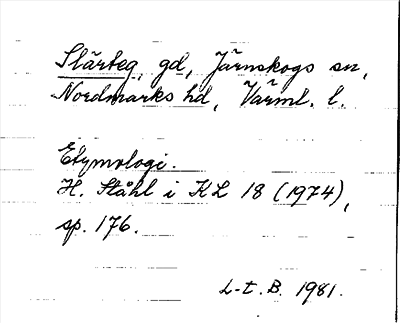 Slärteg, gd, Järnskogs sn,
Nordmarks hd, Värml. l.
Etymologi.
H. Ståhl i KL 18 (1974),
sp. 176.
L-t. B. 1981.